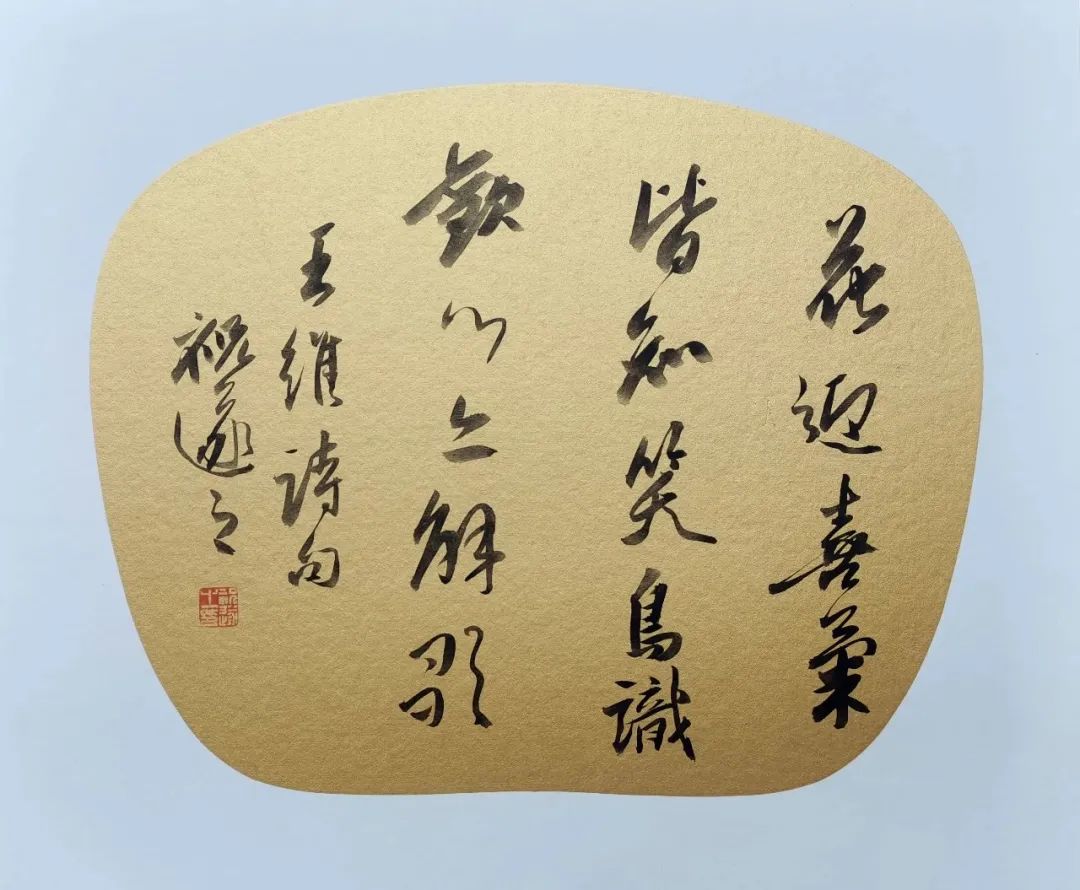 花迎喜氣
皆知笑鳥識
歡心亦解歌
王維詩句
祝遂之